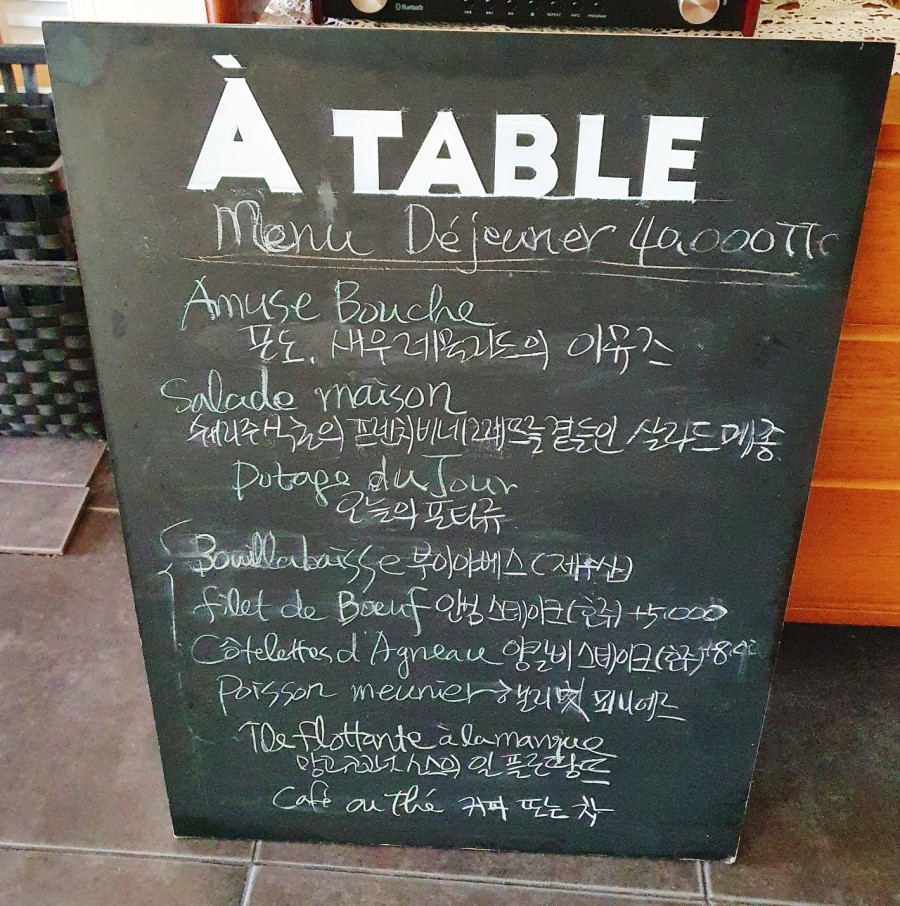 Bluetooth
REPEAT INFO PROGRAM
À TABLE
Menu Déjeuner 40,000 TTC
Amuse Bouche
포도, 새우 레물라드의 아뮤즈
Salade maison
쉐리주식초의 프렌치 비네그레뜨를 곁들인 샐러드 메종
Potage du Jour
오늘의 포타쥬
Bouillabaisse 부이야베스 (제주산)
filet de Boeuf 안심 스테이크(호주) +5.000
Côtelettes d'Agneau 양갈비 스테이크(호주)
Poisson meunier 뫼니에르
Ile flottante à la mangue
망고 소스의 일 플로땅뜨
Café ou thé 커피 또는 차